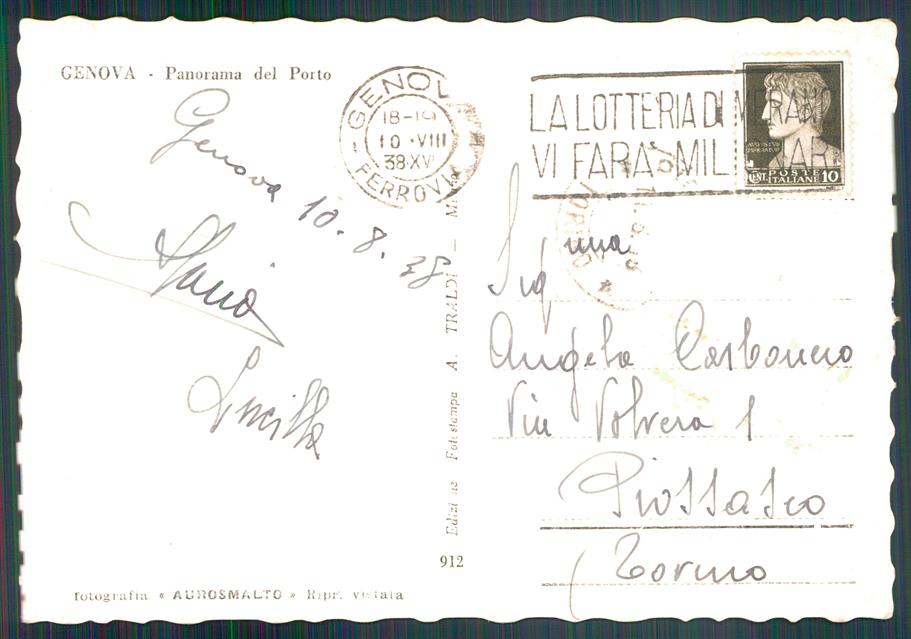 GENOVA - Panorama del Porto
GENOVA
18-19
10·VIII
38·XVI
FERROVIA
LA LOTTERIA DI MERANO
VI FARÀ MILIONARI
POSTE
CENT. ITALIANE 10
Genova 10.8.38
Maria
Lucilla
Sig.nna
Angela Carbonero
Via Volvera 1
Piossasco
(Torino
Edizione Fotostampa A. TRALDI - Milano
912
fotografia « AUROSMALTO » Ripr. vietata